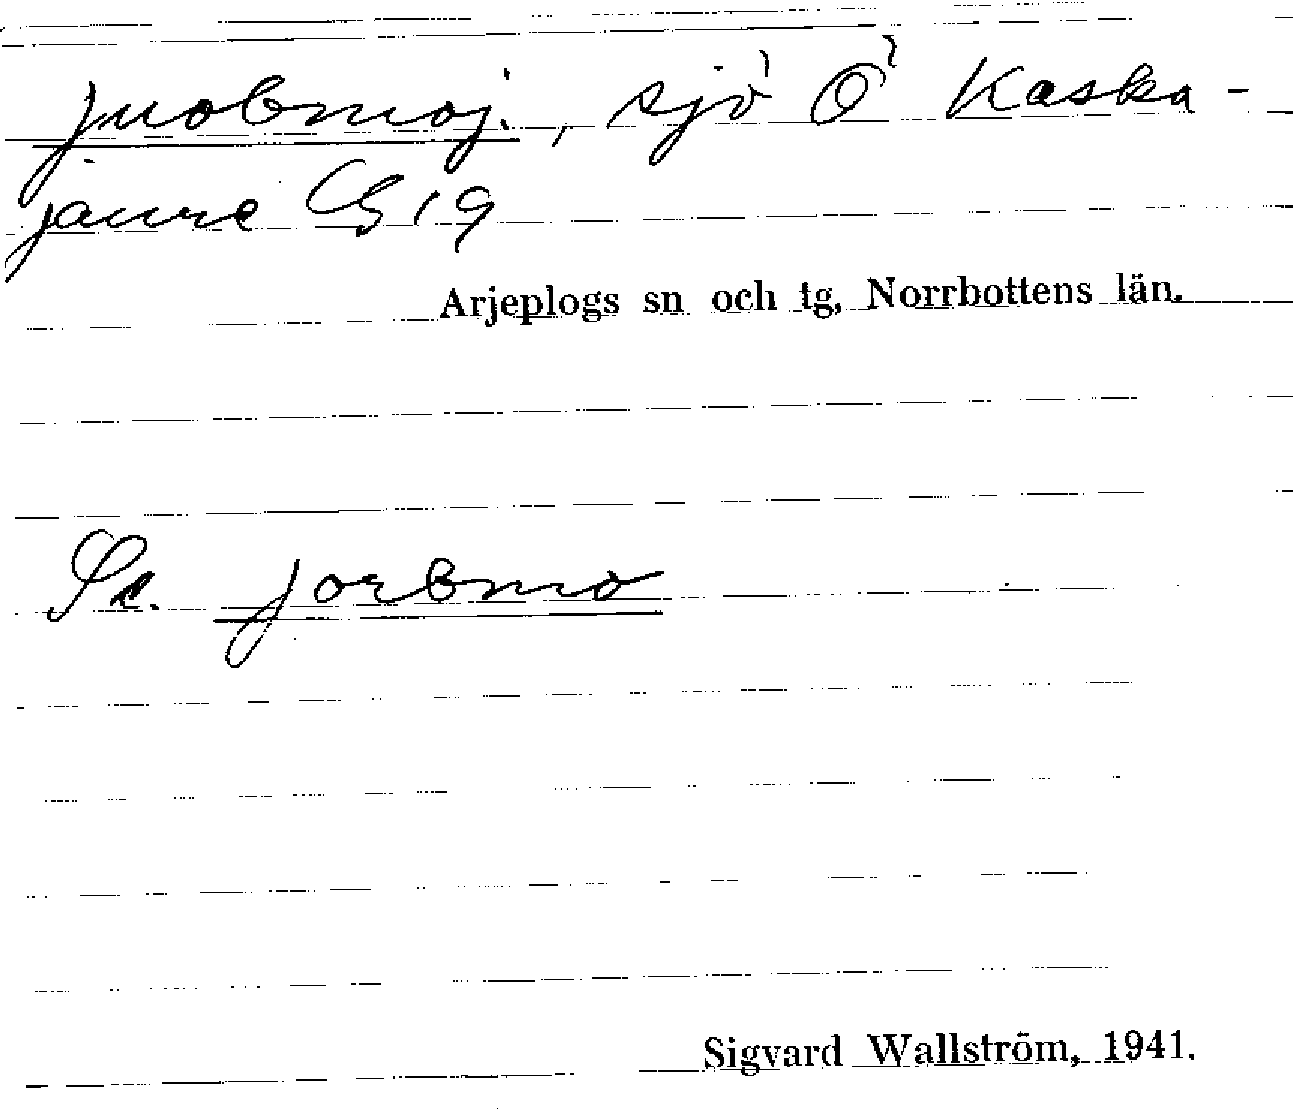 juobmoj., sjö Ö Kaska-
jaure C5 19
Arjeplogs sn och tg, Norrbottens län.
Sv. jorbmo
Sigvard Wallström, 1941.